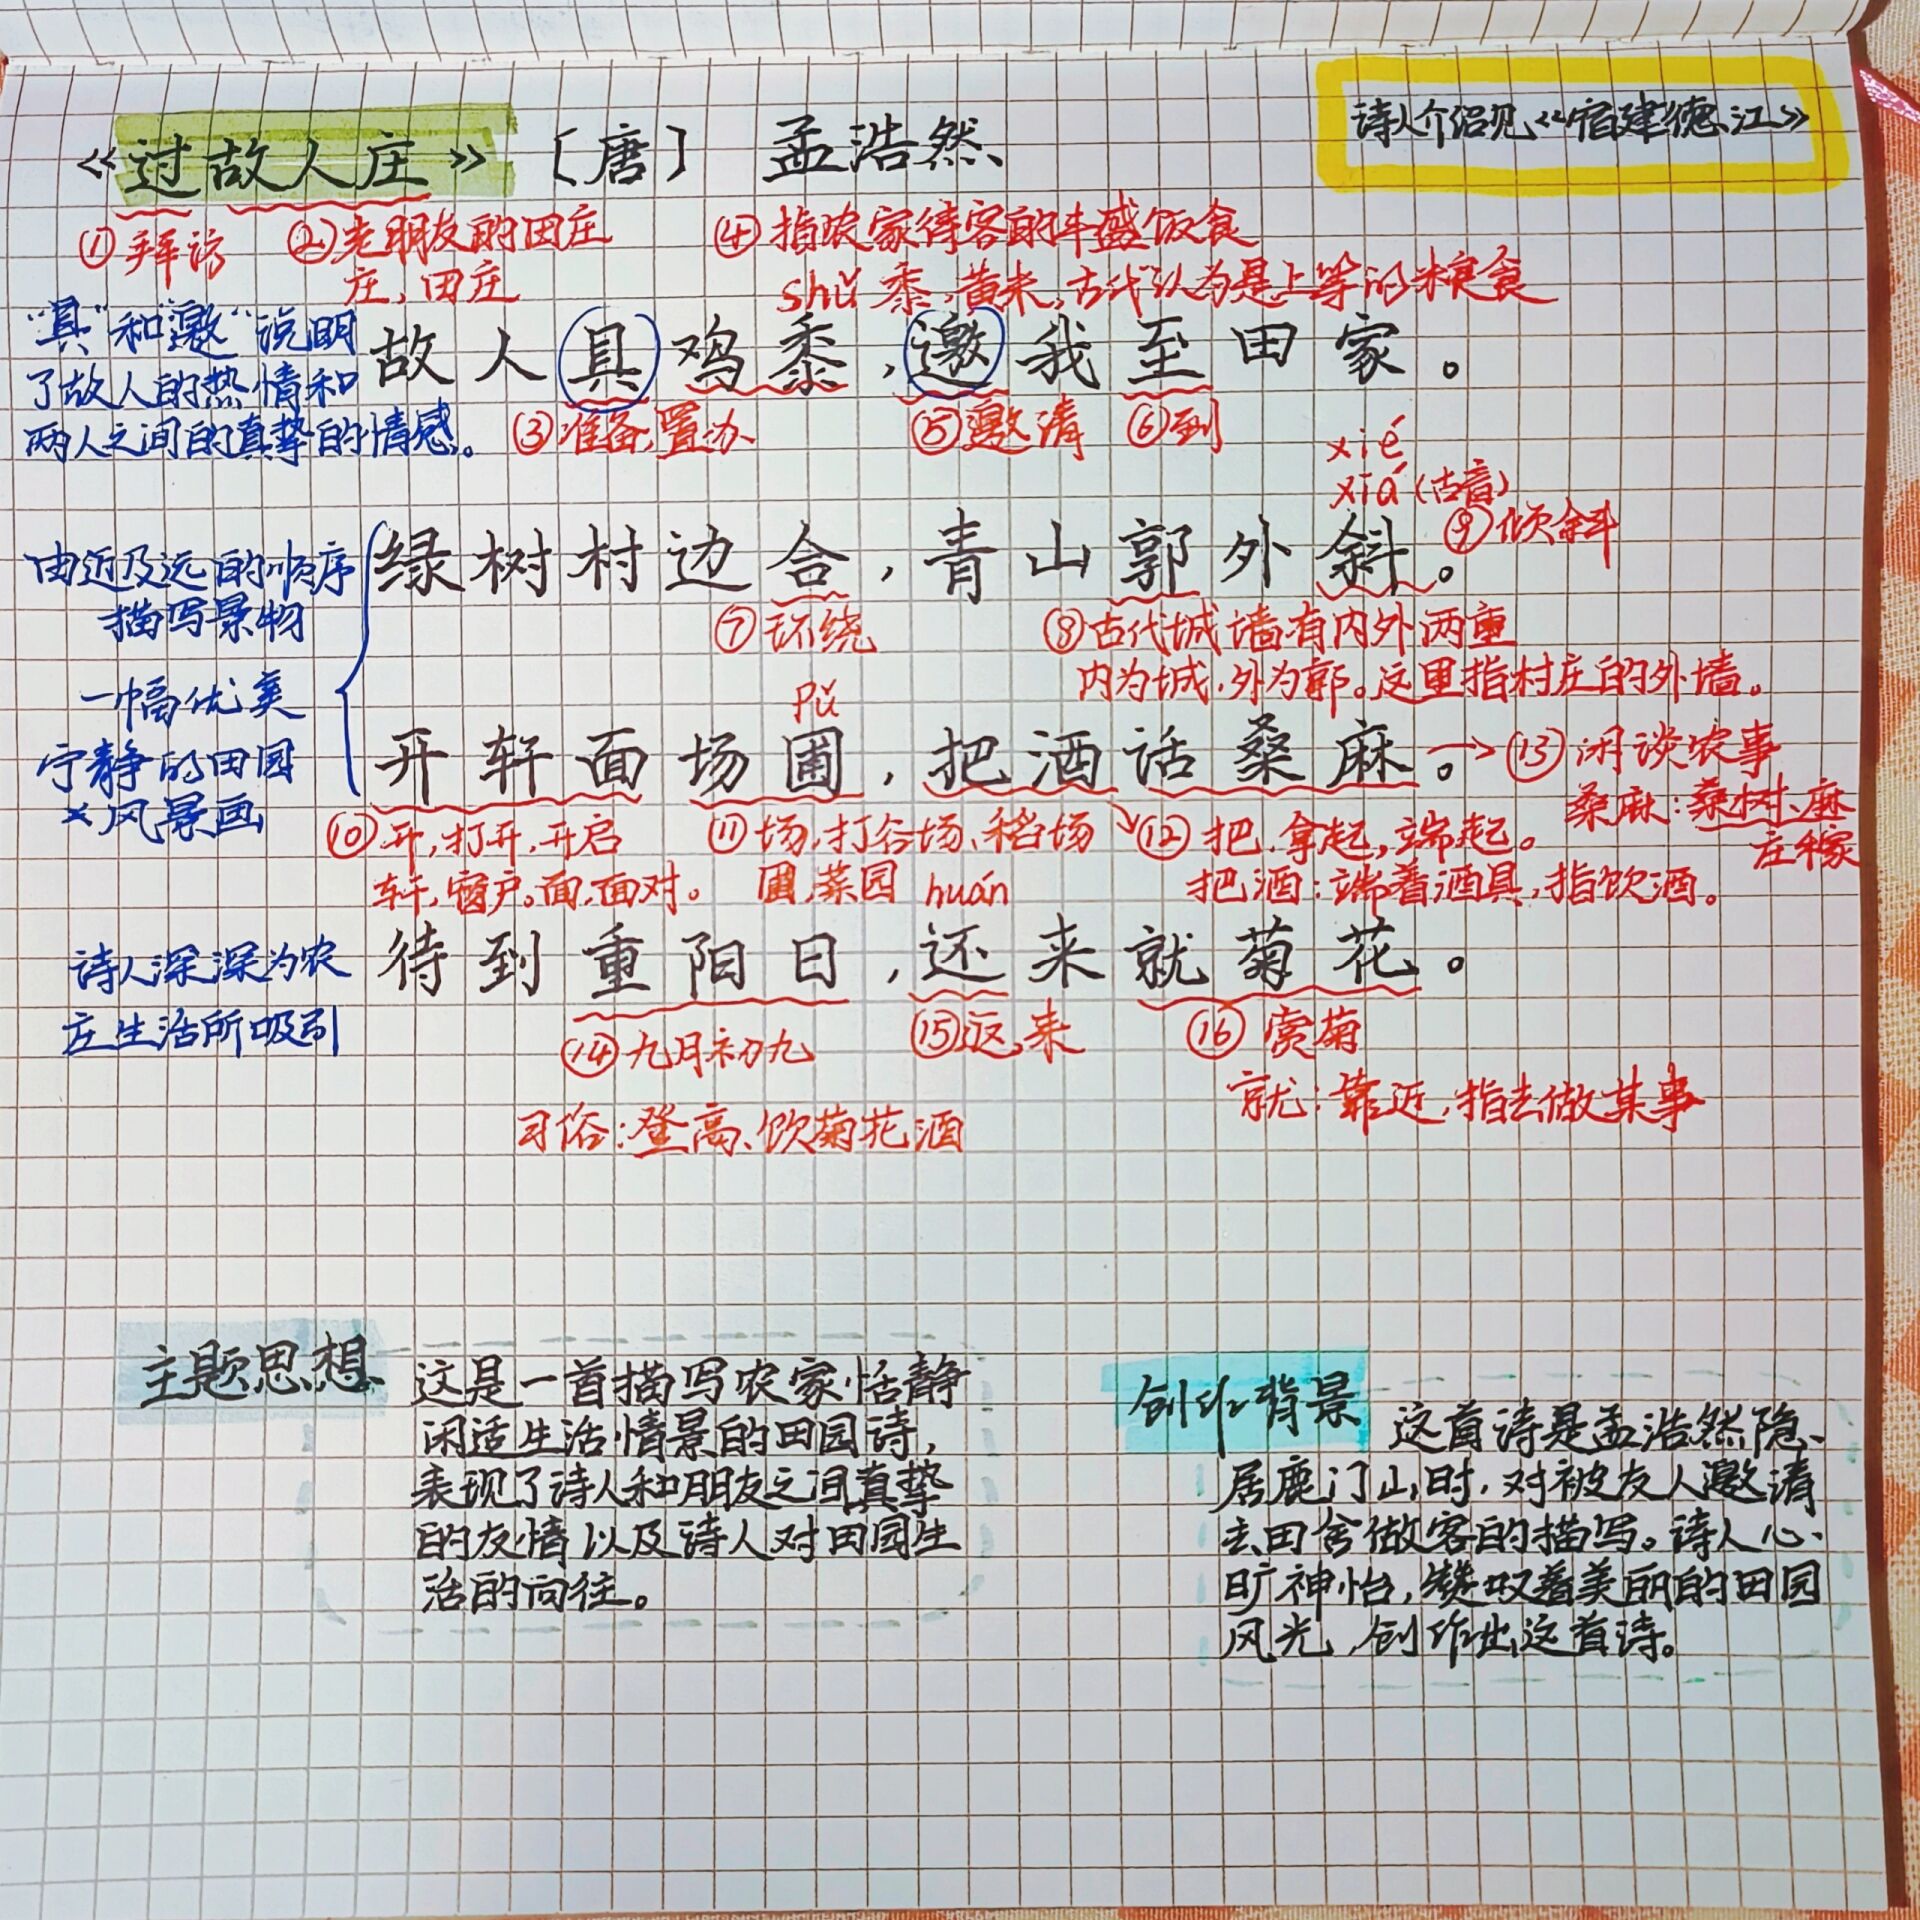 《过故人庄》〔唐〕 孟浩然
诗人介绍见《宿建德江》
①拜访 ②老朋友的田庄
庄,田庄
④指农家待客的丰盛饭食
shǔ 黍,黄米,古代认为是上等的粮食
"具"和"邀"说明
了故人的热情和
两人之间的真挚的情感。
故人具鸡黍,邀我至田家。
③准备,置办 ⑤邀请 ⑥到
xié
xiá(古音)
⑨倾斜
由近及远的顺序
描写景物
绿树村边合,青山郭外斜。
⑦环绕 ⑧古代城墙有内外两重
内为城,外为郭。这里指村庄的外墙。
一幅优美
宁静的田园
风景画
pǔ
开轩面场圃,把酒话桑麻。→⑬闲谈农事
桑麻:桑树、麻
庄稼
⑩开,打开,开启 ⑪场,打谷场、稻场 ⑫把,拿起,端起。
轩,窗户。面,面对。 圃,菜园 huán 把酒:端着酒具,指饮酒。
诗人深深为农
庄生活所吸引
待到重阳日,还来就菊花。
⑭九月初九 ⑮返,来 ⑯赏菊
就:靠近,指去做某事
习俗:登高、饮菊花酒
主题思想
这是一首描写农家恬静
闲适生活情景的田园诗,
表现了诗人和朋友之间真挚
的友情以及诗人对田园生
活的向往。
创作背景
这首诗是孟浩然隐
居鹿门山时,对被友人邀请
去田舍做客的描写。诗人心
旷神怡,赞叹着美丽的田园
风光,创作出这首诗。